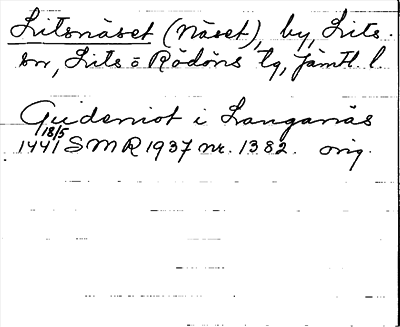 Litsnäset (Näset), by, Lits
sn, Lits o Rödöns tg, Jämtl. l.
Gudeniot i Langanäs
1441 18/5 SMR 1937 nr. 1382. orig.